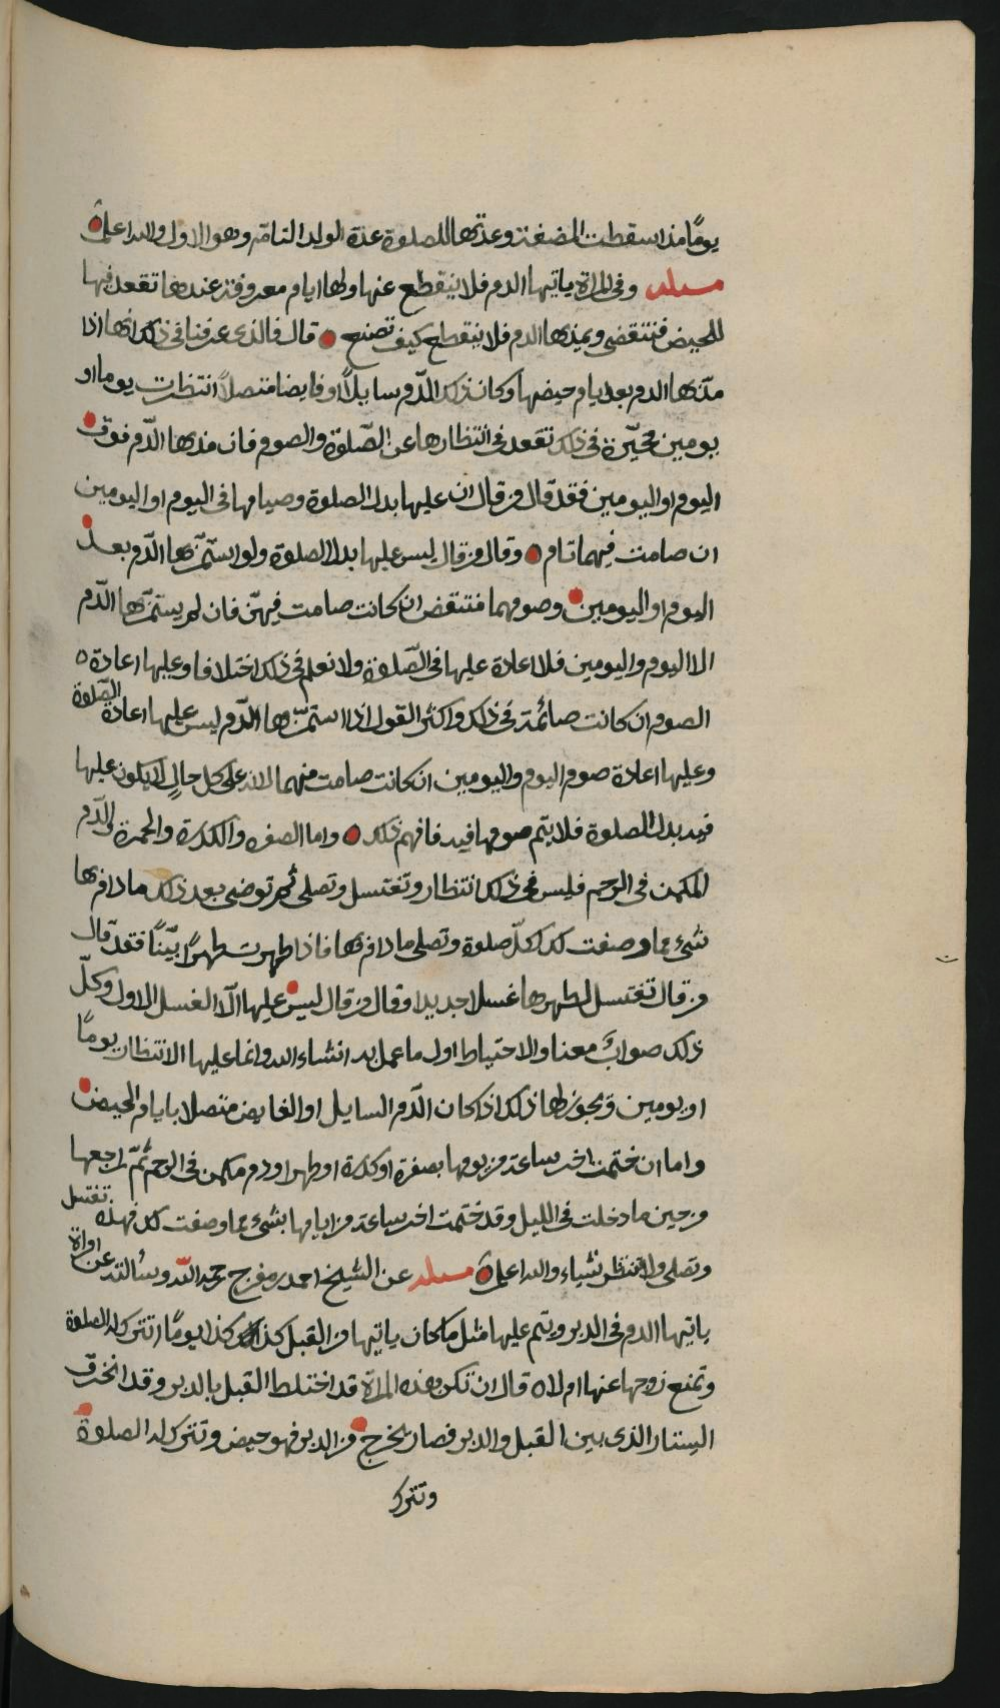 يومًا مذ اسقطت المضغة وعدتها للصلوة عدة الولد التامّ وهو الاول والله اعلم
مسئلة وفى المراة ياتيها الدم فلا ينقطع عنها ولها ايام معروفة عندها تقعد فيها
للحيض فتنقضى ويمدها الدم فلا ينقطع كيف تصنع قال فالذى عرفنا فى ذلك انها اذا
مدّ بها الدم بعد ايام حيضها وكان ذلك الدّم سايلًا او فايضا متصلًا انتظرت يوما او
يومين مخيّرة فى ذلك تقعد فى انتظارها عن الصّلوة والصوم فان مد بها الدّم فوق
اليوم او اليومين فقد قال من قال ان عليها بدل الصلوة وصيامها فى اليوم او اليومين
ان صامت فيهما تام وقال من قال ليس عليها بدل الصلوة ولو استمرّ بها الدّم بعد
اليوم او اليومين وصومهما منتقض ان كانت صامت فيهنّ فان لم يستمرّ بها الدّم
الا اليوم واليومين فلا اعادة عليها فى الصّلوة ولا نعلم فى ذلك اختلافا وعليها اعادة
الصوم ان كانت صائمة فى ذلك واكثر القول اذا استمرّ بها الدّم ليس عليها اعادة الصّلوة
وعليها اعادة صوم اليوم واليومين ان كانت صامت منهما لانه على كل حالٍ لا يكون عليها
فيه بدل الصلوة فلا يتم صومها فيه فافهم ذلك واما الصفره والكدرة والحمرة والدّم
المكمن فى الرحم فليس فى ذلك انتظار وتغتسل وتصلى ثم توضى بعد ذلك ما دام بها
شىء مما وصفت لك لكلّ صلوة وتصلى ما دام بها فاذا طهرت طهرًا بيّنًا فقد قال
من قال تغتسل لطهرها غسلا جديدا وقال من قال ليس عليها الّا الغسل الاول وكلّ
ذلك صوابٌ معنا والاحتياط اولى ما عمل به انشاء الله وانما عليها الانتظار يومًا
او يومين ويجوز لها ذلك اذا كان الدّم السايل او الفايض متصلا بايام الحيض
واما ان ختمت اخر ساعة من يومها بصفرة او كدرة او طهر او دم مكمن فى الرحم ثمّ راجعها
من حين ما دخلت فى الليل وقد ختمت اخر ساعة من ايامها بشىء مما وصفت لك فهذه تغتسل
وتصلى ولا تنتظر شياء والله اعلم مسئلة عن الشيخ احمد بن مفرج رحمه اللّه وسألته عن امراة
ياتيها الدم فى الدبر ويتم عليها مثل ما كان ياتيها من القبل كذا كذا يومًا اتترك له الصلوة
وتمنع زوجها عنها ام لا قال ان تكن هذه المراة قد اختلط القبل بالدبر وقد انخرق
الستار الذى بين القبل والدبر فصار يخرج من الدبر فهو حيض وتترك له الصلوة
وتترك